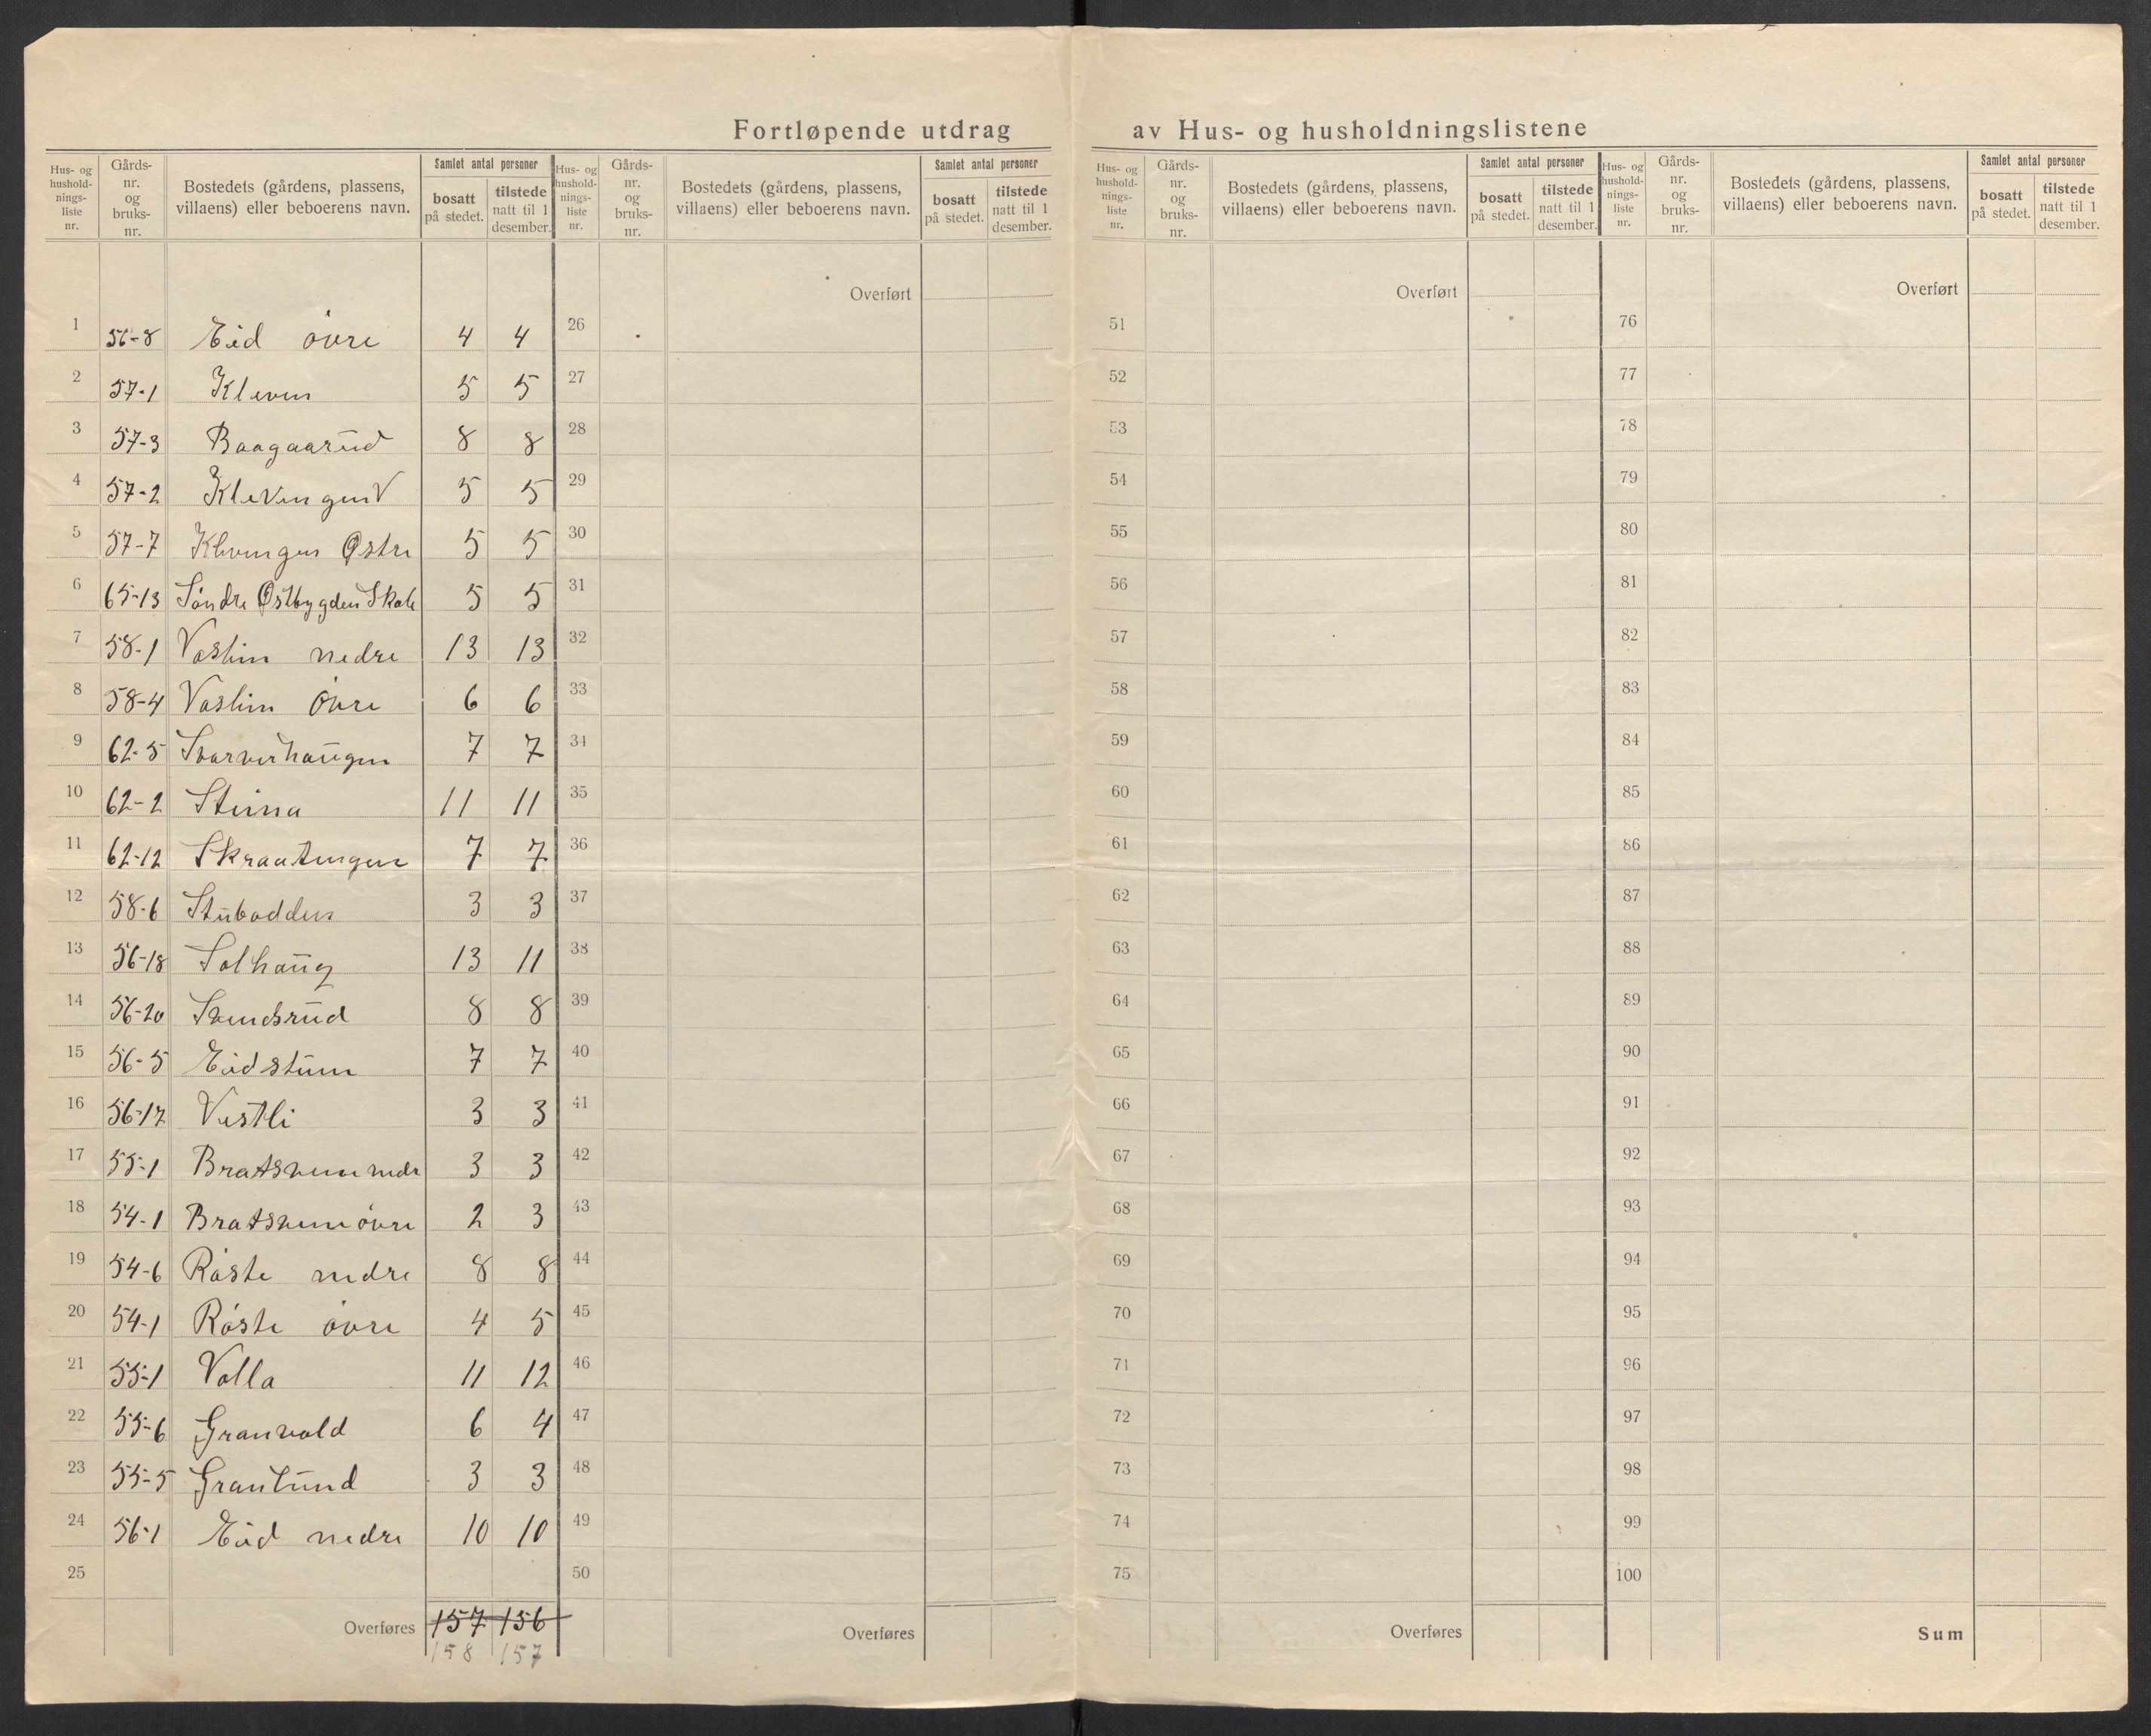 Fortløpende utdrag av Hus- og husholdningslistene
Hus- og hushold-nings-liste nr. Gårds-nr. og bruks-nr. Bostedets (gårdens, plassens, villaens) eller beboerens navn. Samlet antal personer bosatt på stedet. tilstede natt til 1 desember.
Hus- og hushold-nings-liste nr. Gårds-nr. og bruks-nr. Bostedets (gårdens, plassens, villaens) eller beboerens navn. Samlet antal personer bosatt på stedet. tilstede natt til 1 desember.
Hus- og hushold-nings-liste nr. Gårds-nr. og bruks-nr. Bostedets (gårdens, plassens, villaens) eller beboerens navn. Samlet antal personer bosatt på stedet. tilstede natt til 1 desember.
Hus- og hushold-nings-liste nr. Gårds-nr. og bruks-nr. Bostedets (gårdens, plassens, villaens) eller beboerens navn. Samlet antal personer bosatt på stedet. tilstede natt til 1 desember.
Overført Overført Overført
1 56-8 Eid övre 4 4 26 51 76
2 57-1 Kleven 5 5 27 52 77
3 57-3 Baagaarud 8 8 28 53 78
4 57-2 Klevengen V 5 5 29 54 79
5 57-7 Klevengen Østre 5 5 30 55 80
6 65-13 Söndre Østbygden Skole 5 5 31 56 81
7 58-1 Voslien nedre 13 13 32 57 82
8 58-4 Voslien övre 6 6 33 58 83
9 62-5 Svarverhaugen 7 7 34 59 84
10 62-2 Steina 11 11 35 60 85
11 62-12 Skraatengen 7 7 36 61 86
12 58-6 Stubodden 3 3 37 62 87
13 56-18 Solhaug 13 11 38 63 88
14 56-20 Svendsrud 8 8 39 64 89
15 56-5 Eidstuen 7 7 40 65 90
16 56-17 Vestli 3 3 41 66 91
17 55-1 Bratsveen nedr 3 3 42 67 92
18 54-1 Bratsveen övre 2 3 43 68 93
19 54-6 Röste nedre 8 8 44 69 94
20 54-1 Röste övre 4 5 45 70 95
21 55-1 Volla 11 12 46 71 96
22 55-6 Granvold 6 4 47 72 97
23 55-5 Granlund 3 3 48 73 98
24 56-1 Eid nedre 10 10 49 74 99
25 50 75 100
Overføres 157 156 Overføres Overføres Sum
158 157